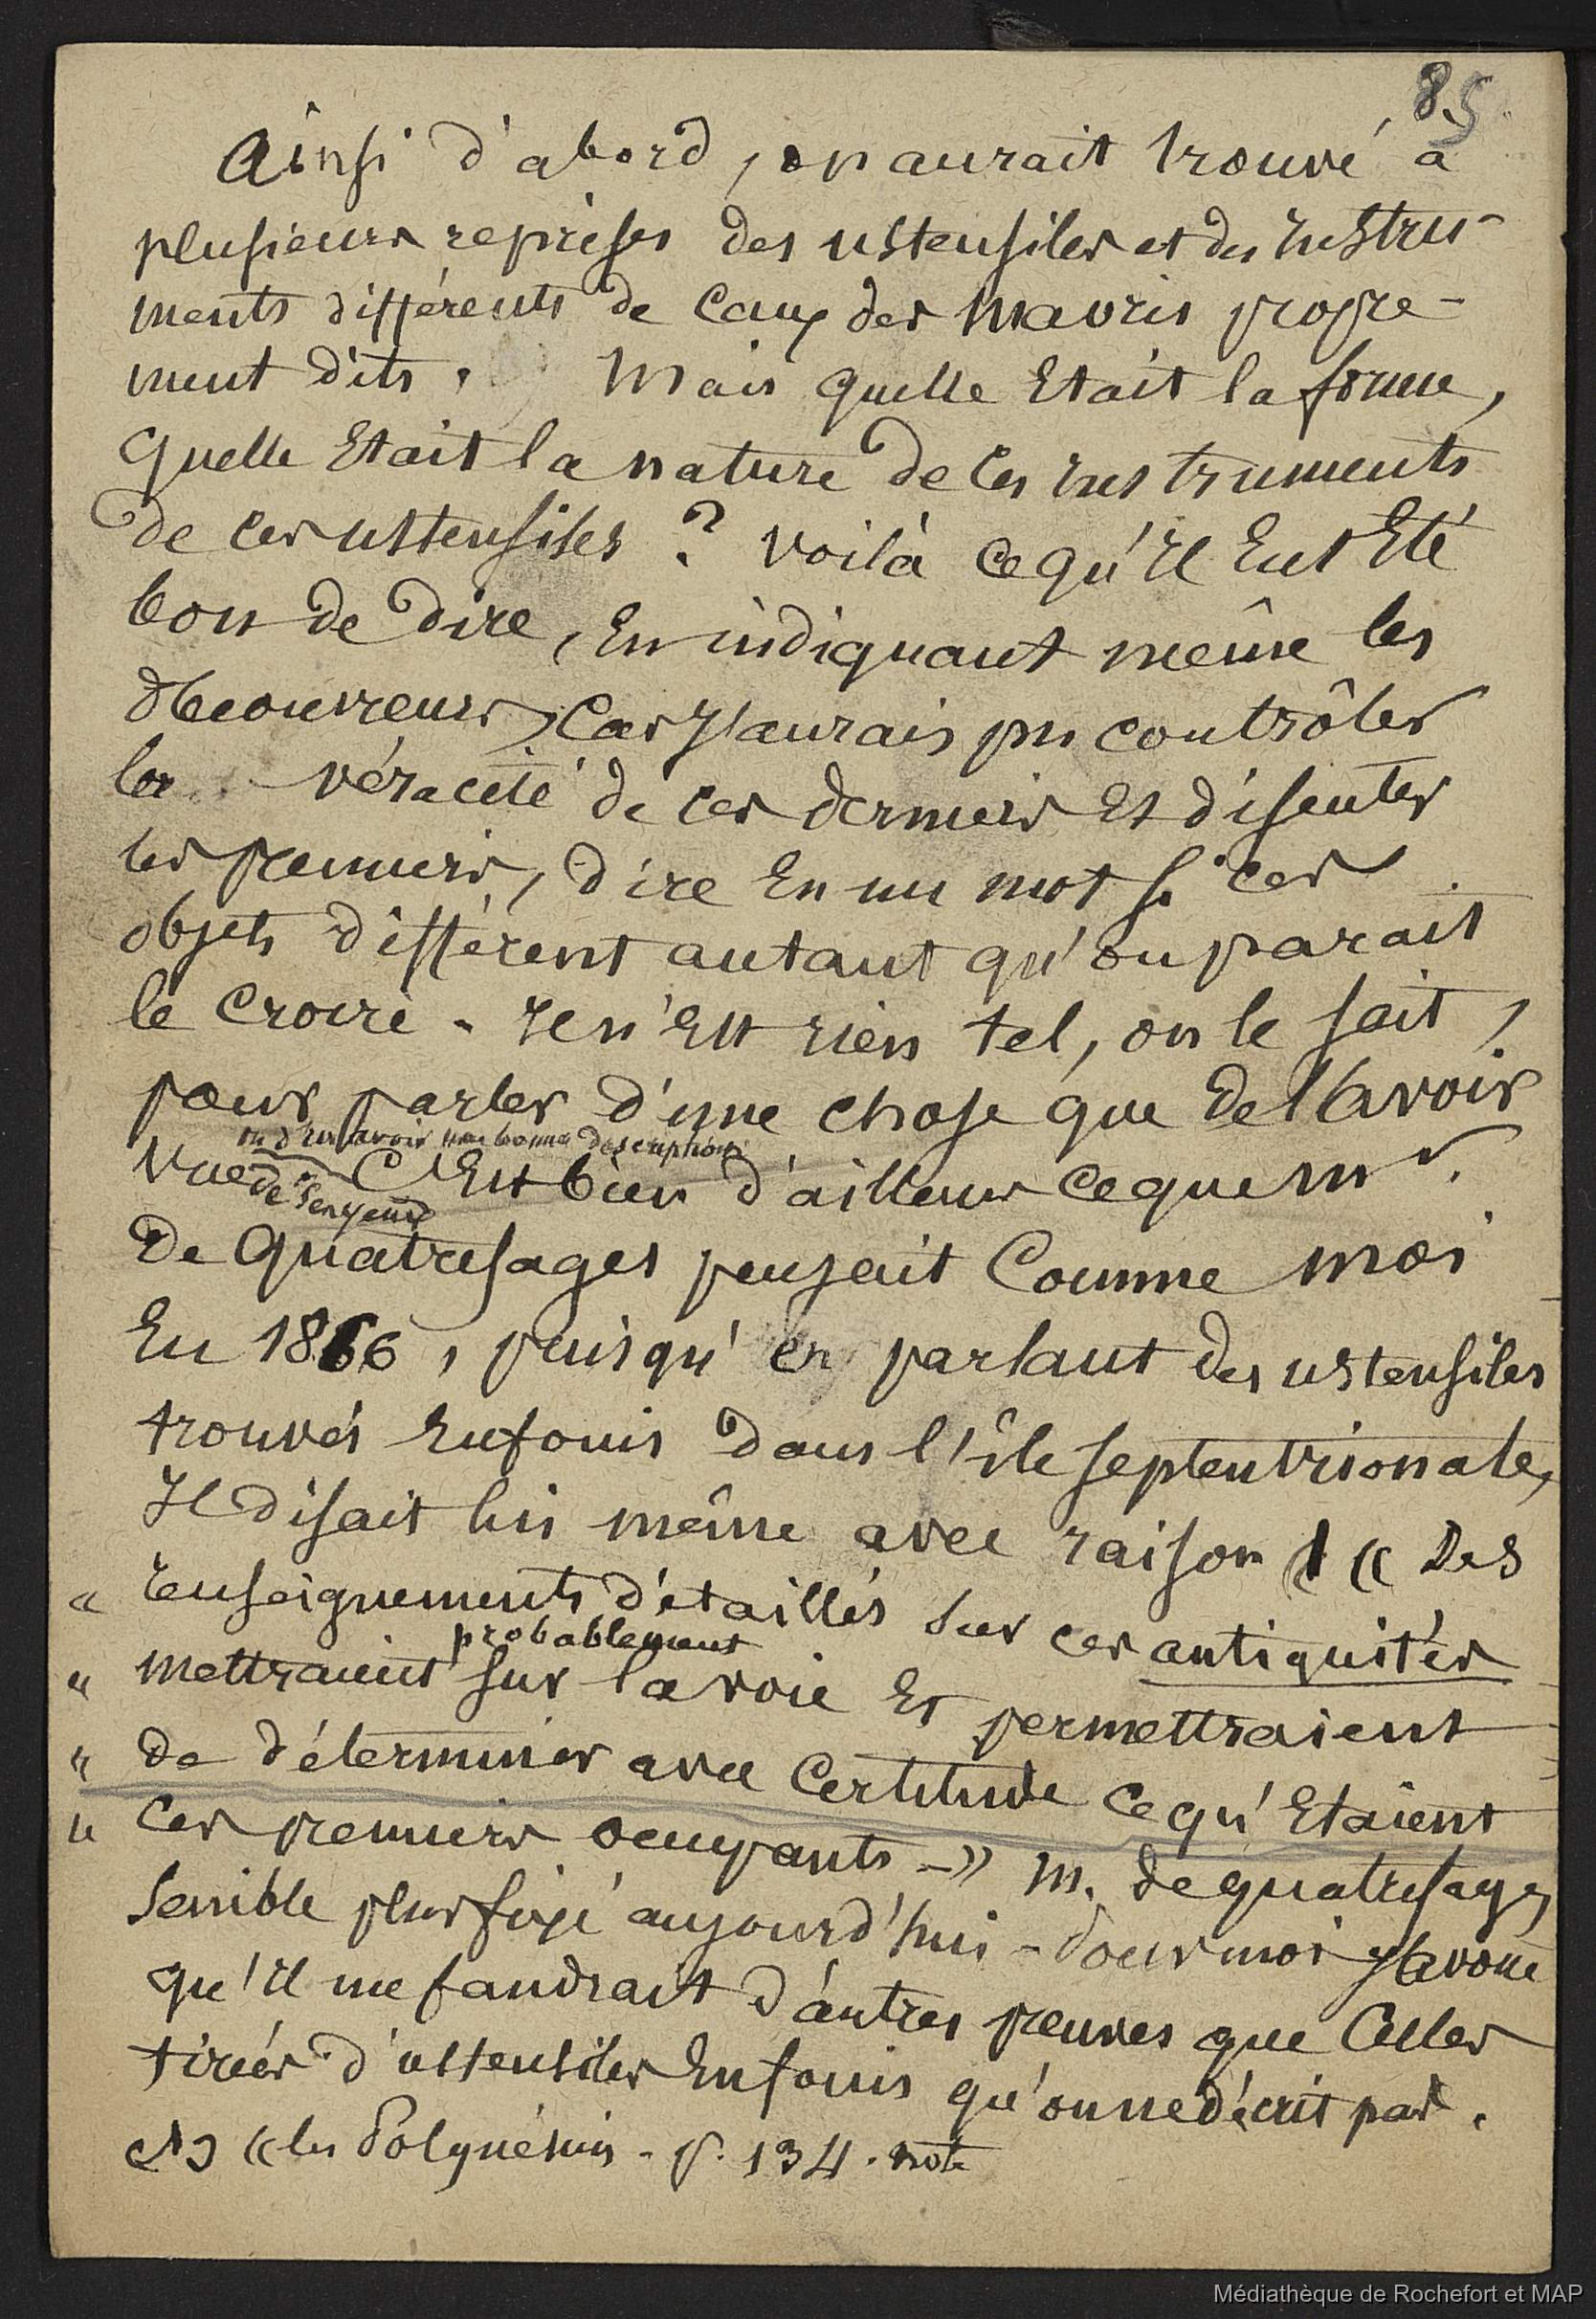 85
Ainsi d'abord, on aurait trouvé à
plusieurs reprises des ustensiles et des instru-
ments différents de ceux des Maoris propre-
ment dits. Mais quelle était la forme,
quelle était la nature de ces instruments
de ces ustensiles ? voilà ce qu'il eut été
bon de dire, en indiquant même les
découvreurs, car j'aurais pu contrôler
la véracité de ces derniers et discuter
les premiers, dire en un mot si ces
objets diffèrent autant qu'on parait
le croire. Il n'est rien tel, on le sait,
pour parler d'une chose que de l'avoir
ou d'en avoir une bonne description
vue de ses yeux C'est bien d'ailleurs ce que Mr.
De Quatrefages pensait comme moi
En 1866, puisqu'en parlant des ustensiles
trouvés enfouis dans l'île septentrionale,
Il disait lui même avec raison 1 « Des
« renseignements détaillés sur ces antiquités
probablement
« mettraient sur la voie et permettraient
« de déterminer avec certitude ce qu'étaient
« ces premiers occupants -» M. de Quatrefages
semble plus fixé aujourd'hui - Pour moi j'avoue
qu'il me faudrait d'autres preuves que celles
tirées d'ustensiles enfouis qu'on ne décrit pas.
(1) « les Polynésiens - p. 134. note
Médiathèque de Rochefort et MAP